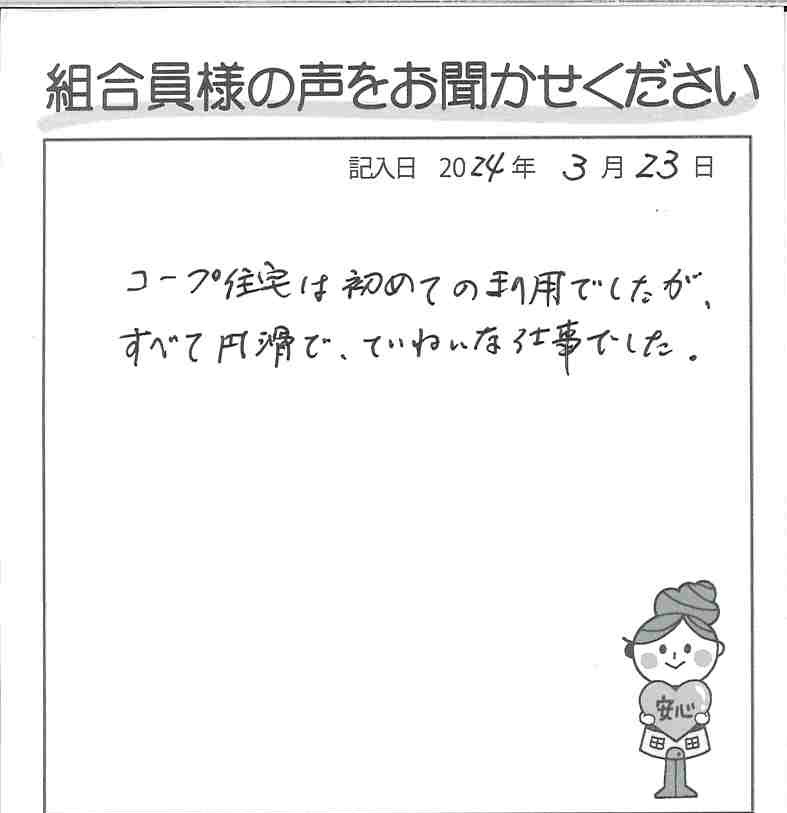 組合員様の声をお聞かせください
記入日 2024年 3月23日
コープ住宅は初めての利用でしたが、
すべて円滑で、ていねいな仕事でした。
安心